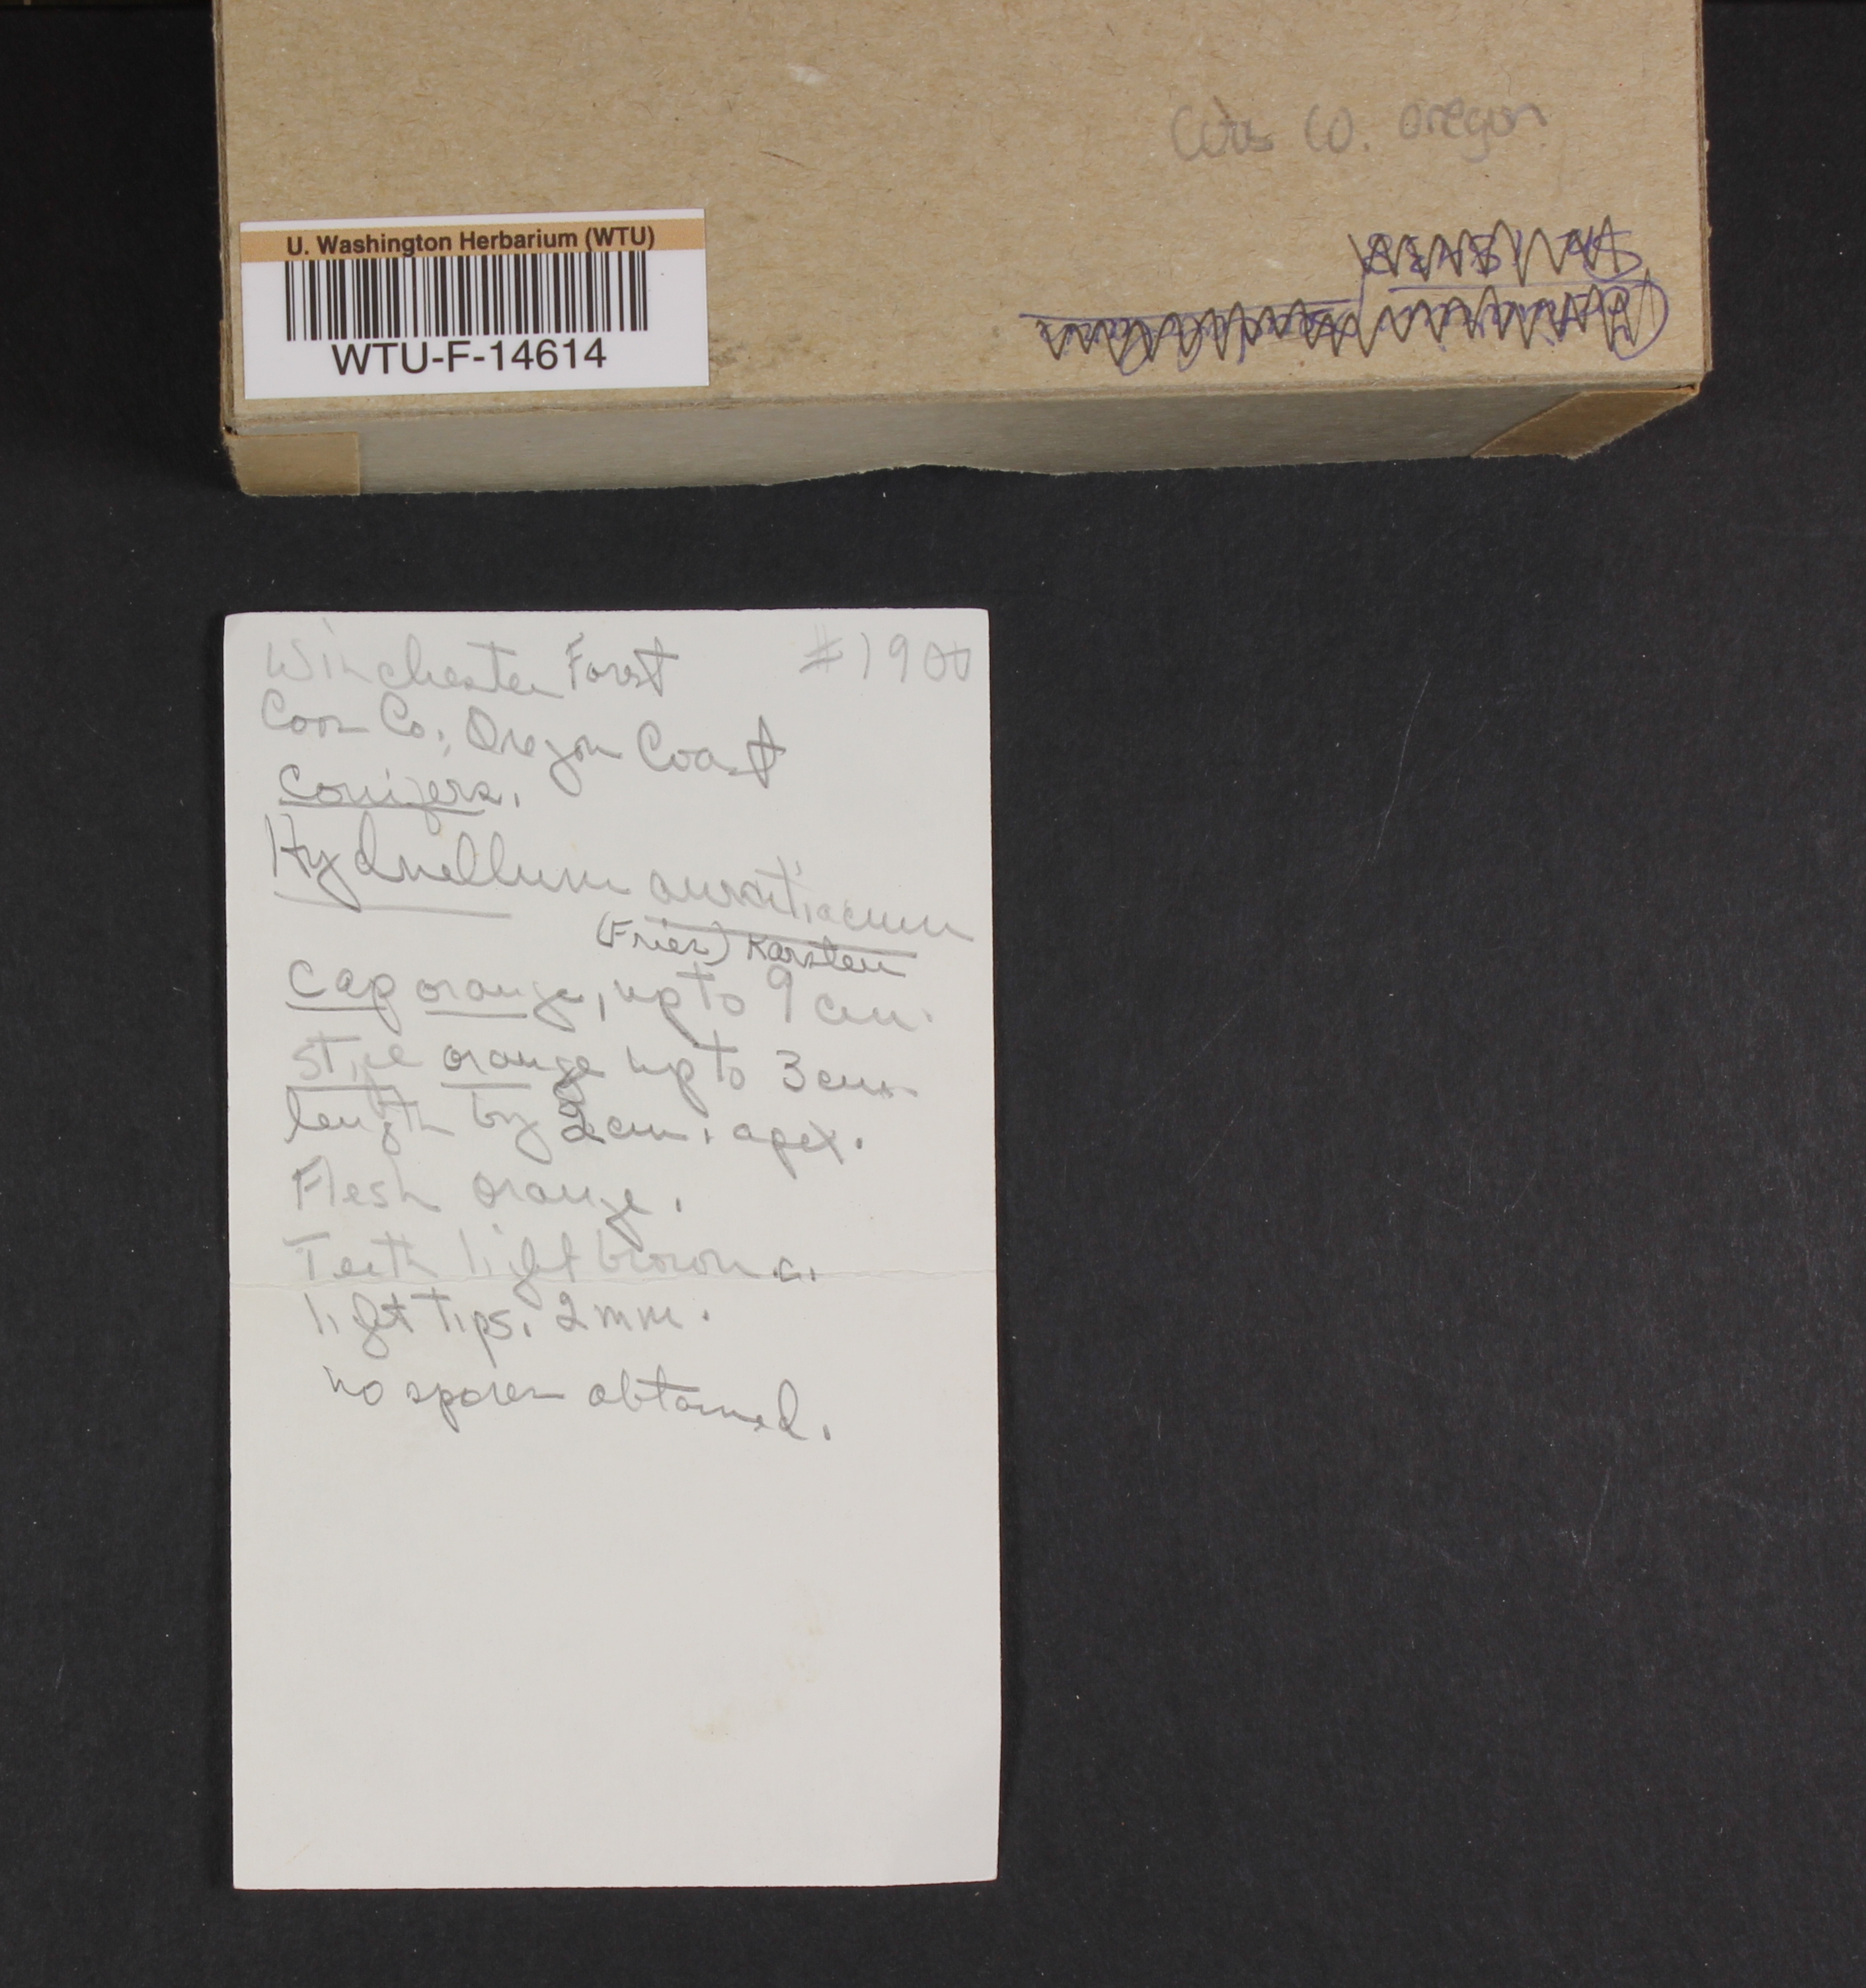 Coos Co. Oregon
U. Washington Herbarium (WTU)
WTU-F-14614
Winchester Forest #1900
Coos Co., Oregon Coast
Conifers.
Hydnellum aurantiacum
(Fries) Karsten
Cap orange, up to 9 cm.
Stipe orange up to 3 cm.
length by 2 cm. apex.
Flesh orange.
Teeth light brown c.
light tips. 2 mm.
no spores obtained.